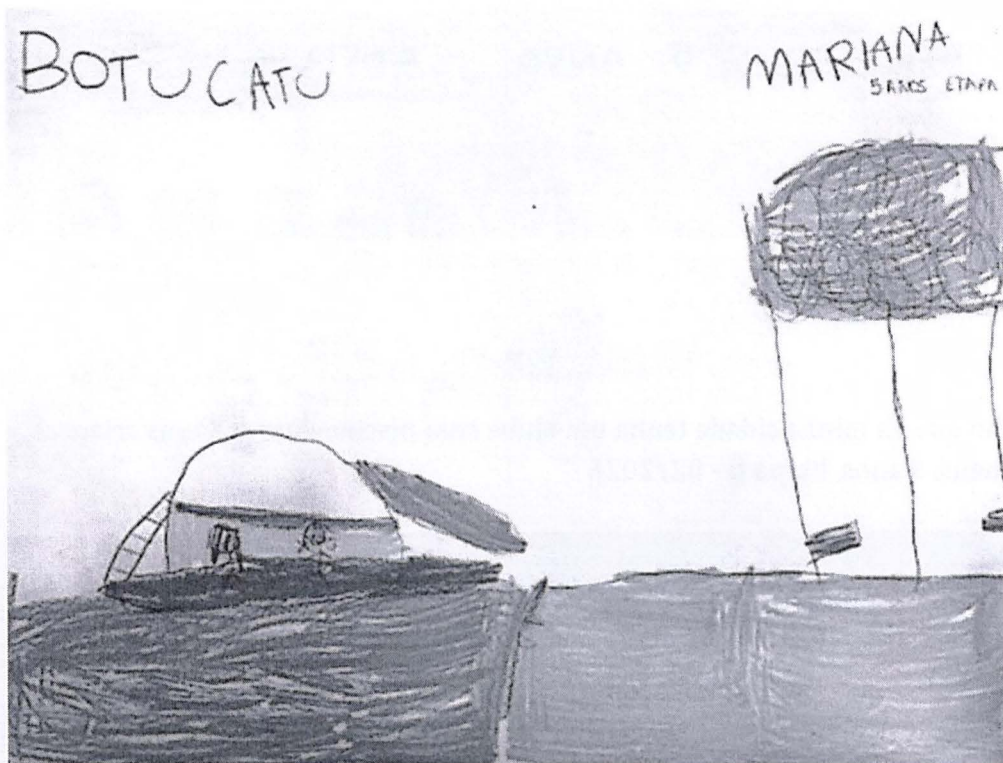 BOTUCATU
MARIANA
5 ANOS ETAPA